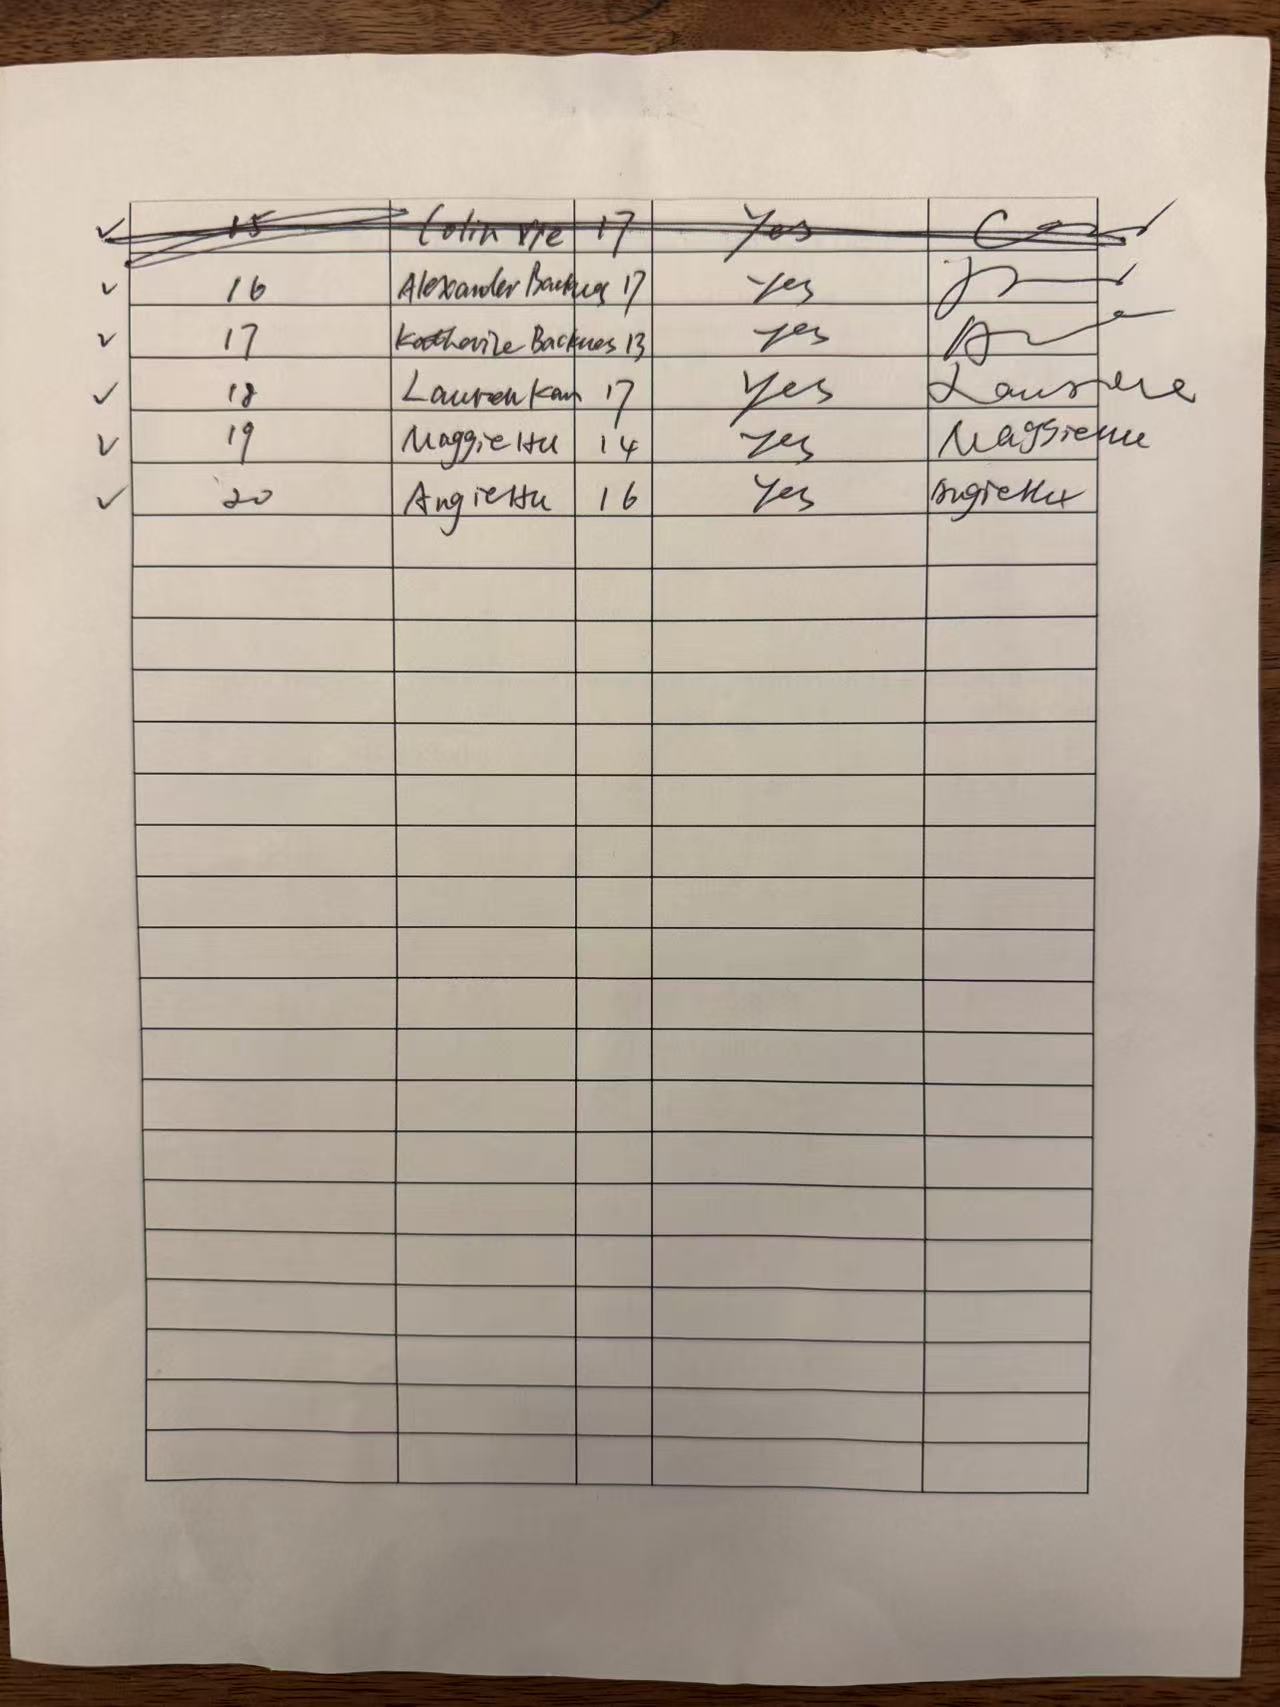 15 Colin 17 Yes
16 Alexander Backues 17 Yes
17 Katherine Backues 13 yes
18 Lauren Kan 17 Yes
19 Maggie Hu 14 Yes Maggie Hu
20 Angie Hu 16 Yes Angie Hu